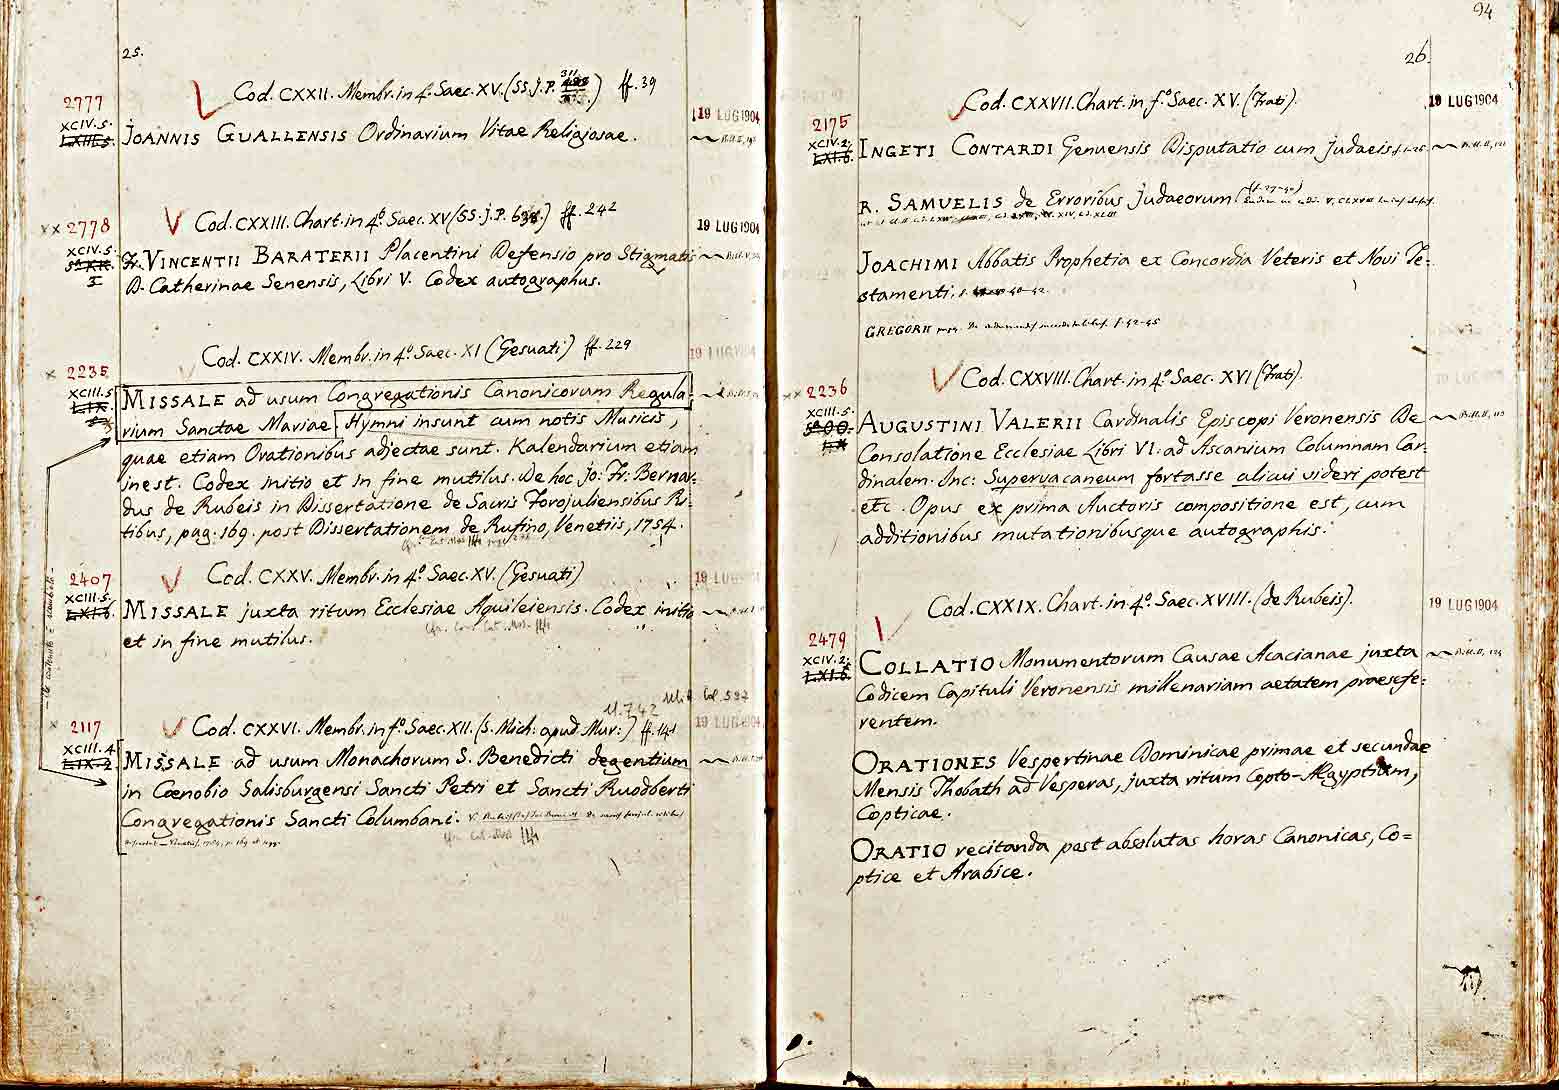 25.
Cod. CXXII. Membr. in 4.º Saec. XV. (SS. J. P. 311) ff. 39
2777
XCIV. 5.
19 LUG 1904
JOANNIS GUALLENSIS Ordinarium Vitae Religiosae.
Cod. CXXIII. Chart. in 4.º Saec. XV (SS. J. P. ) ff. 242
×× 2778
XCIV. 5.
19 LUG 1904
Fr. VINCENTII BARATERII Placentini Defensio pro Stigmatis
D. Catherinae Senensis, Libri V. Codex autographus.
Cod. CXXIV. Membr. in 4.º Saec. XI (Gesuati) ff. 229
× 2235
XCIII. 5
19 LUG 1904
MISSALE ad usum Congregationis Canonicorum Regula:
rium Sanctae Mariae. Hymni insunt cum notis Musicis,
quae etiam Orationibus adjectae sunt. Kalendarium etiam
inest. Codex initio et in fine mutilus. De hoc Jo: Fr: Bernar:
dus de Rubeis in Dissertatione de Sacris Forojuliensibus Ri:
tibus, pag. 169. post Dissertationem de Rufino, Venetiis, 1754.
Cod. CXXV. Membr. in 4.º Saec. XV. (Gesuati)
2407
XCIII. 5.
19 LUG 1904
MISSALE juxta ritum Ecclesiae Aquileiensis. Codex initio
et in fine mutilus.
M. 742
Cod. CXXVI. Membr. in f.º Saec. XII. (S. Mich: apud Mur:) ff. 141
× 2117
XCIII. 4
19 LUG 1904
MISSALE ad usum Monachorum S. Benedicti degentium
in Coenobio Salisburgensi Sancti Petri et Sancti Ruodberti
Congregationis Sancti Columbani.
94
26.
Cod. CXXVII. Chart. in f.º Saec. XV. (Frati).
2175
XCIV. 2.
19 LUG 1904
INGETI CONTARDI Genuensis Disputatio cum Judaeis
R. SAMUELIS de Erroribus Judaeorum (ff. 27-40)
JOACHIMI Abbatis Prophetia ex Concordia Veteris et Novi Te:
stamenti. 40-42
GREGORII f. 42-45
Cod. CXXVIII. Chart. in 4.º Saec. XVI (Frati).
×× 2236
XCIII. 5.
AUGUSTINI VALERII Cardinalis Episcopi Veronensis De
Consolatione Ecclesiae Libri VI. ad Ascanium Columnam Car:
dinalem. Inc: Supervacaneum fortasse alicui videri potest
etc. Opus ex prima Auctoris compositione est, cum
additionibus mutationibusque autographis.
Cod. CXXIX. Chart. in 4.º Saec. XVIII. (de Rubeis).
2479
XCIV. 2.
19 LUG 1904
COLLATIO Monumentorum Causae Acacianae juxta
Codicem Capituli Veronensis millenariam aetatem praesefe:
rentem.
ORATIONES Vespertinae Dominicae primae et secundae
Mensis Thobath ad Vesperas, juxta ritum Copto-Ægyptium,
Copticae.
ORATIO recitanda post absolutas horas Canonicas, Co=
ptice et Arabice.